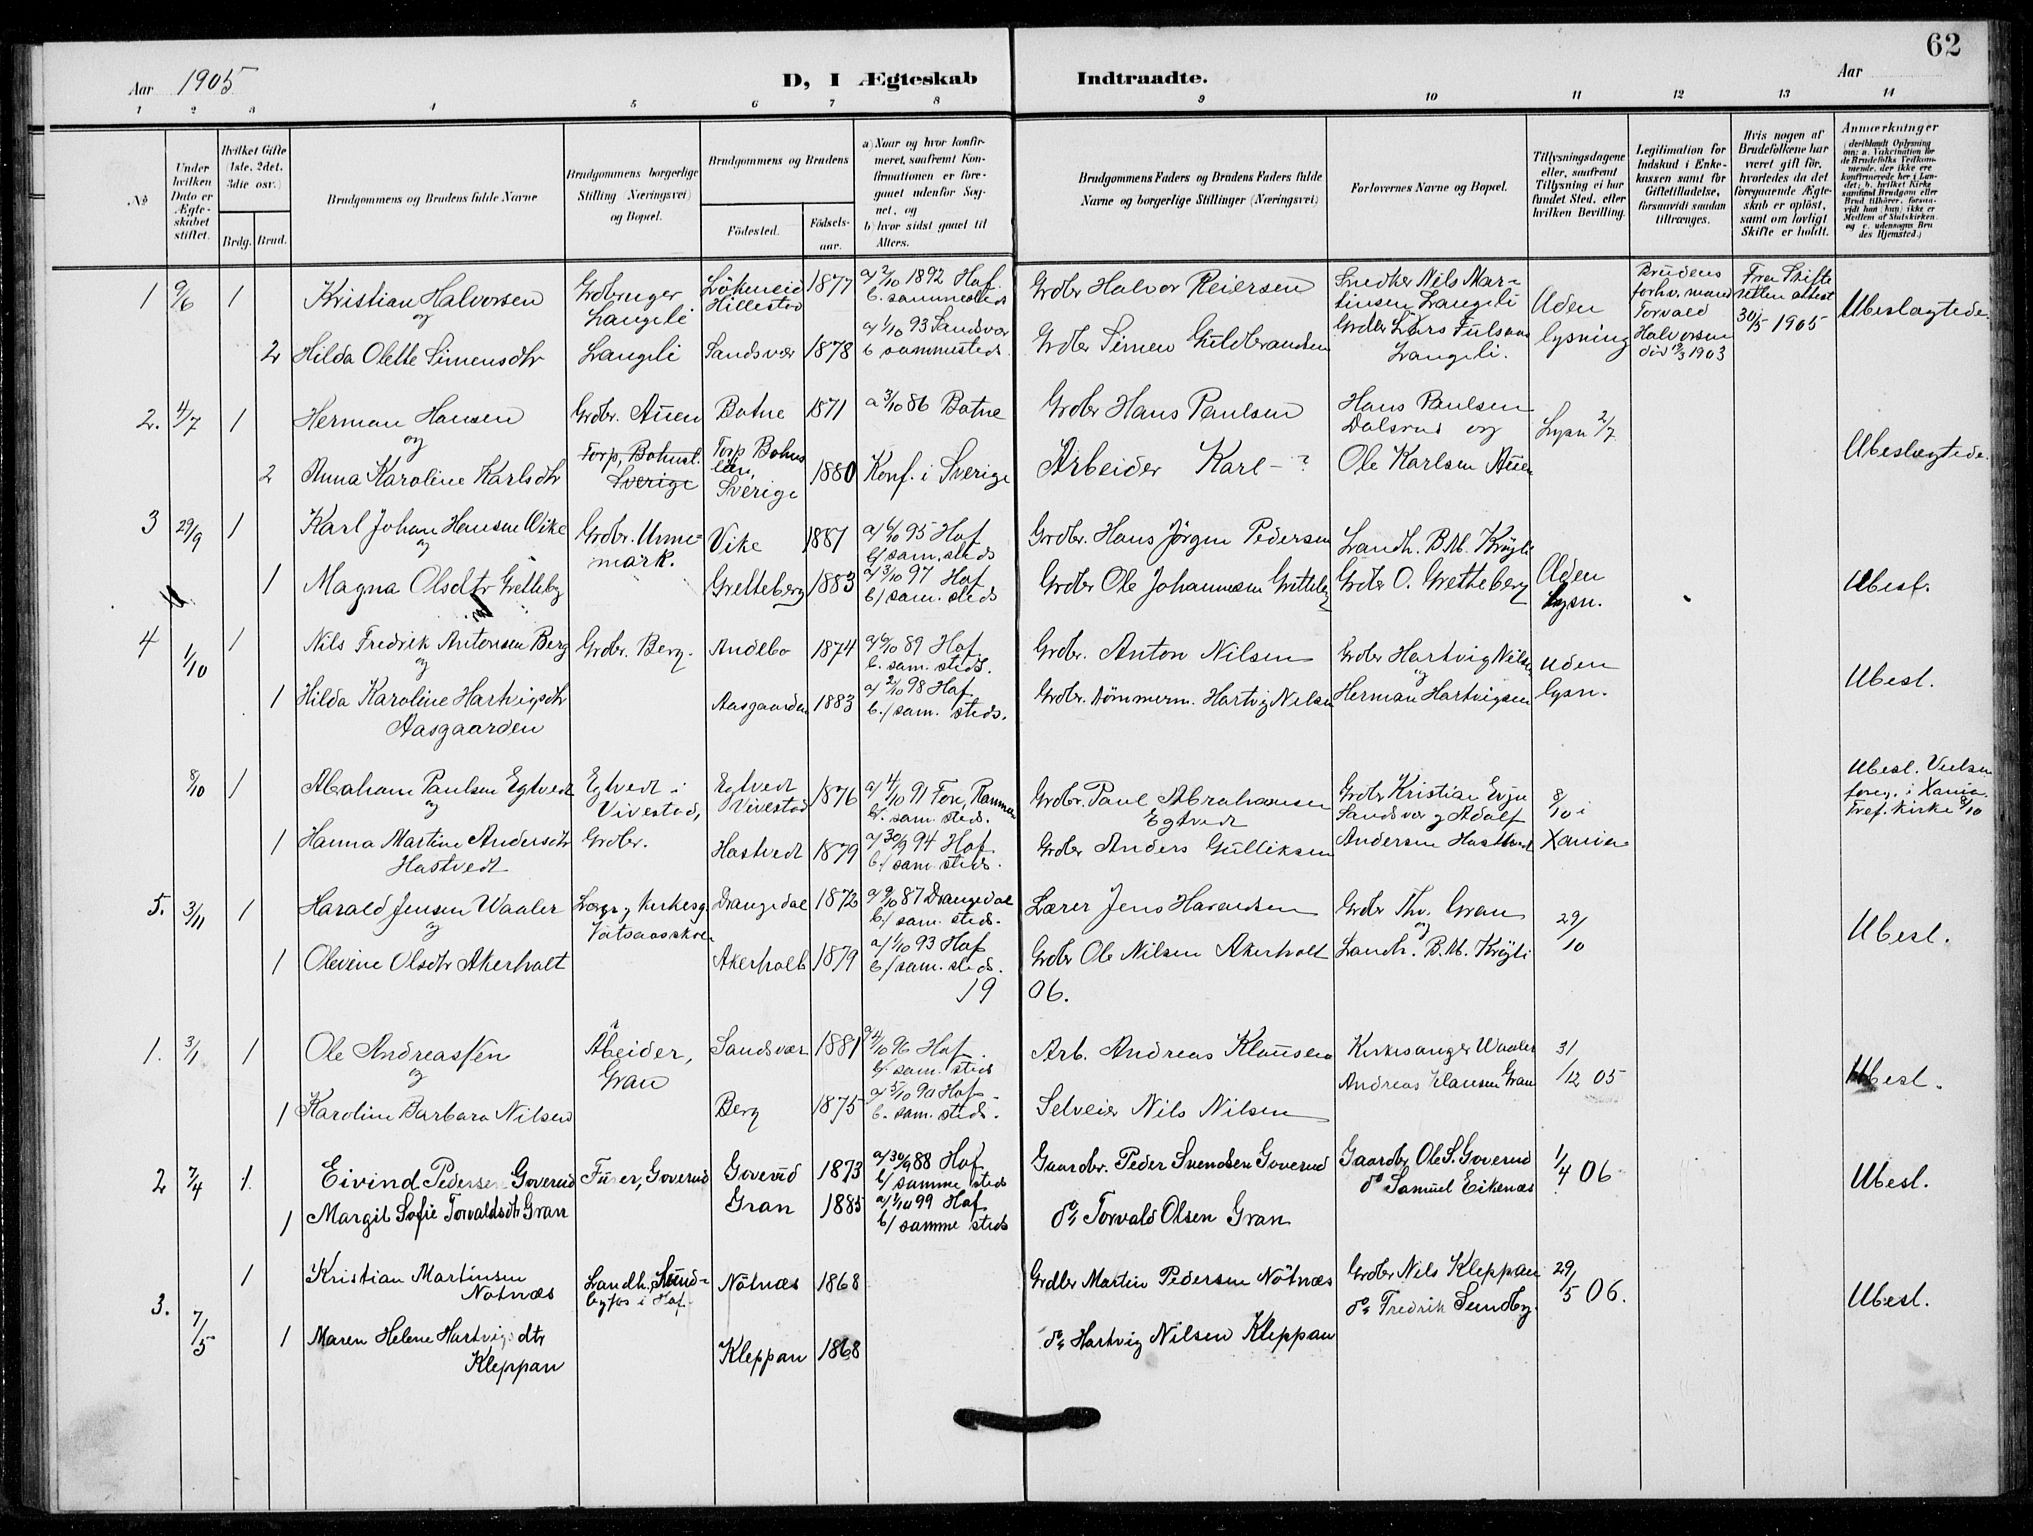 62
Aar 1905
D, I Ægteskab Indtraadte.
Aar
1 2 3 4 5 6 7 8 9 10 11 12 13 14
No
Under hvilken Dato er Ægteskabet stiftet.
Hvilket Gifte (1ste, 2det, 3die osv.)
Brdg. Brud.
Brudgommens og Brudens fulde Navne
Brudgommens borgerlige Stilling (Næringsvei) og Bopæl.
Brudgommens og Brudens
Födested.
Födselsaar.
a) Naar og hvor konfirmeret, saafremt Konfirmationen er foregaaet udenfor Sognet, og
b) hvor sidst gaaet til Alters.
Brudgommens Faders og Brudens Faders fulde Navne og borgerlige Stillinger (Næringsvei)
Forlovernes Navne og Bopæl.
Tillysningsdagene eller, saafremt Tillysning ei har fundet Sted, efter hvilken Bevilling.
Legitimation for Indskud i Enkekassen samt for Giftetilladelse, forsaavidt saadan tiltrænges.
Hvis nogen af Brudefolkene har været gift för, hvorledes da det foregaaende Ægteskab er oplöst, samt om lovligt Skifte er holdt.
Anmærkninger
(deriblandt Oplysning om: a. Vakcination for de Brudefolks Vedkommende, der ikke ere konfirmerede her i Landet; b. hvilket Kirkesamfund Brudgom eller Brud tilhörer, forsaavidt han (hun) ikke er Medlem af Statskirken og c. udensogns Brudes Hjemsted.)
1 9/6 1 Kristian Halvorsen Grdbruger Langeli Hillestad 1877 a/ 2/10 1892 Hof b. sammesteds Grdbr Halvor Reiersen Snedker Nils Martinsen Langeli
og
2 Hilda Olette Simensdtr Langeli Sandsvær 1878 a/ 1/10 93 Sandsvær b sammesteds Grdbr Simen Guldbrandsen Langeli. Uden lysning Brudens forhv. mand Torvald Halvorsen död 1903 Fra Skifteretten attest 30/5 1905 Ubeslægtede.
2. 4/7 1 Herman Hansen Grdbr. Auen Botne 1871 a 3/10 86 Botne Grdbr Hans Paulsen Hans Paulsen Dalsrud og Lysn 2/7
og
2 Anna Karoline Karlsdtr Torp, Bohusl. Sverige Torp Bohuslän, Sverige 1880 Konf. i Sverige Arbeider Karl - ? Ole Karlsen Auen Ubeslægtede.
3 29/9 1 Karl Johan Hansen Vike Grdbr. Unnemark. Vike 1881 95 Hof b/ sam. steds Grdbr. Hans Jörgen Pedersen Landh. B. M. Kröyli
og
1 Magna Olsdtr Gretteberg Gretteberg 1883 a/ 3/10 97 Hof b/ sam. steds Grdbr Ole Johannesen Gretteberg Grdbr O. Gretteberg Uden Lysn. Ubesl.
4 1/10 1 Nils Fredrik Antonsen Berg Grdbr. Berg. Andebo 1874 89 Hof b. sam. steds. Grdbr. Anton Nilsen Grdbr Hartvig Nilsen uden lysn. Ubesl.
og
1 Hilda Karoline Hartvigsdtr Aasgaarden Aasgaarden 1883 a/ 2/10 98 Hof b./ sam. steds. Grdbr. tömmerm. Hartvig Nilsen og Herman Hartvigsen
8/10 1 Abraham Paulsen Egtvedt Egtvedt i Vivestad, Egtvedt Vivestad 1876 a/ 4/10 91 b. sam. steds. Grdbr. Paul Abrahamsen Egtvedt Grdbr Kristian Sandsvær og Adolf 8/10 i Xania Ubesl. Vielsen foreg. i Xania Tref. Kirke 8/10
og
1 Hanna Martine Andersdtr Hastvedt Grdbr. Hastvedt 1879 a/ 30/9 94 Hof b./ sam. steds. Grdbr Anders Gulliksen Andersen Hastvedt
5. 3/11 1 Harald Jensen Waaler Lærer og Kirkesg. Drangedal 1872 87 Drangedal b/ sam. steds. Lærer Jens Grdbr Thv. Gran 29/10 Ubesl.
og
1 Olevine Olsdtr Akerholt Akerholt 1879 a/ 1/10 93 Hof b/ sam. steds. Grdbr Ole Nilsen Akerholt og Landh. B. M. Kröyli
1906.
1. 3/1 1 Ole Andreassen Abeider, Gran Sandsvær 1881 a 4/10 96 Hof. b/ sam. steds Arb. Andreas Klausen Kirkesanger Waaler 31/12 05 Ubesl.
og
1 Karoline Barbara Nilsen Berg 1875 a 5/10 90 Hof b. sam. steds. Selveier Nils Nilsen Andreas Klausen Gran
2 7/4 1. Eivind Pedersen Goverud Goverud Goverud 1873 a/ 30/9 88 Hof b/ samme steds Gaardbr. Peder Svendsen Goverud Gaardbr Ole S. Goverud 1/4 06 Ubesl.
1 Margit Sofie Torvaldsdtr Gran Gran 1885 a/ 1/10 99 Hof b/ samme steds do Torvald Olsen Gran do Samuel Eikenæs
3. 7/5 1 Kristian Martinsen Nötnæs Landh. Sundbyfos i Hof. Nötnæs 1868 Grdbr Martin Pedersen Nötnæs Grdbr Nils Kleppan 29/5 06. Ubesl.
1 Maren Helene Hartvigsdtr Kleppan Kleppan 1868 do Hartvig Nilsen Kleppan do Fredrik Sundby.